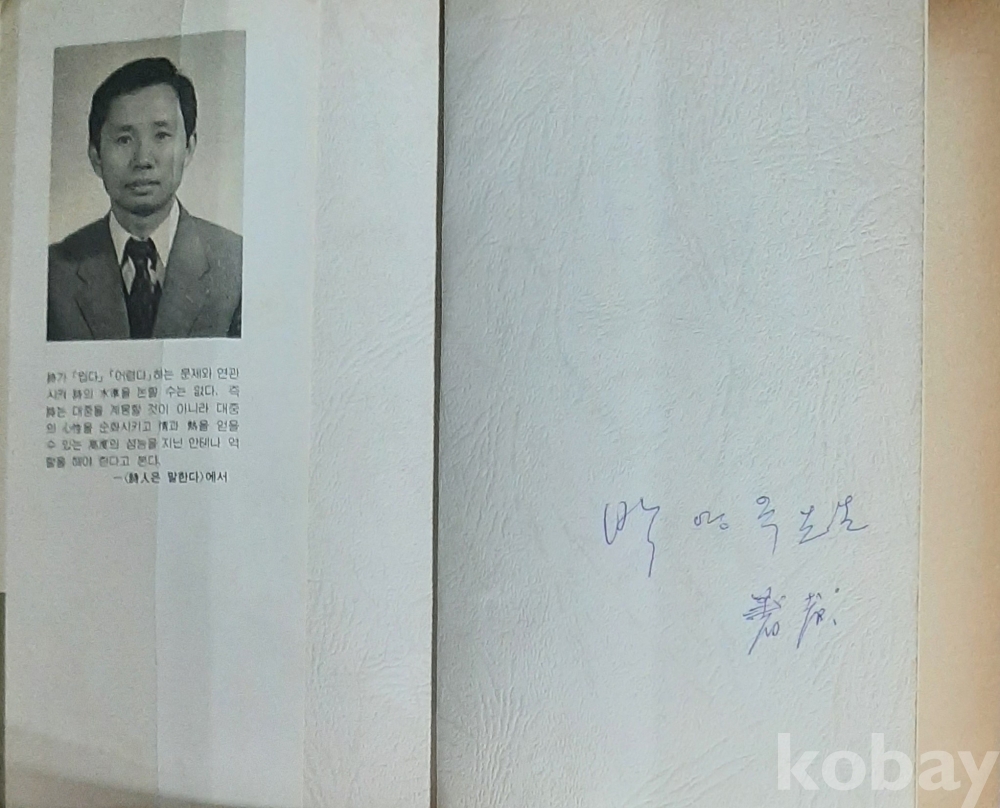 詩가 「쉽다」「어렵다」하는 문제와 연관
시켜 詩의 水準을 논할 수는 없다. 즉
詩는 대중을 계몽할 것이 아니라 대중
의 心性을 순화시키고 情과 熱을 얻을
수 있는 高度의 성능을 지닌 안테나 역
할을 해야 한다고 본다.
—〈詩人은 말한다〉에서
朴 영옥 先生
著者
kobay